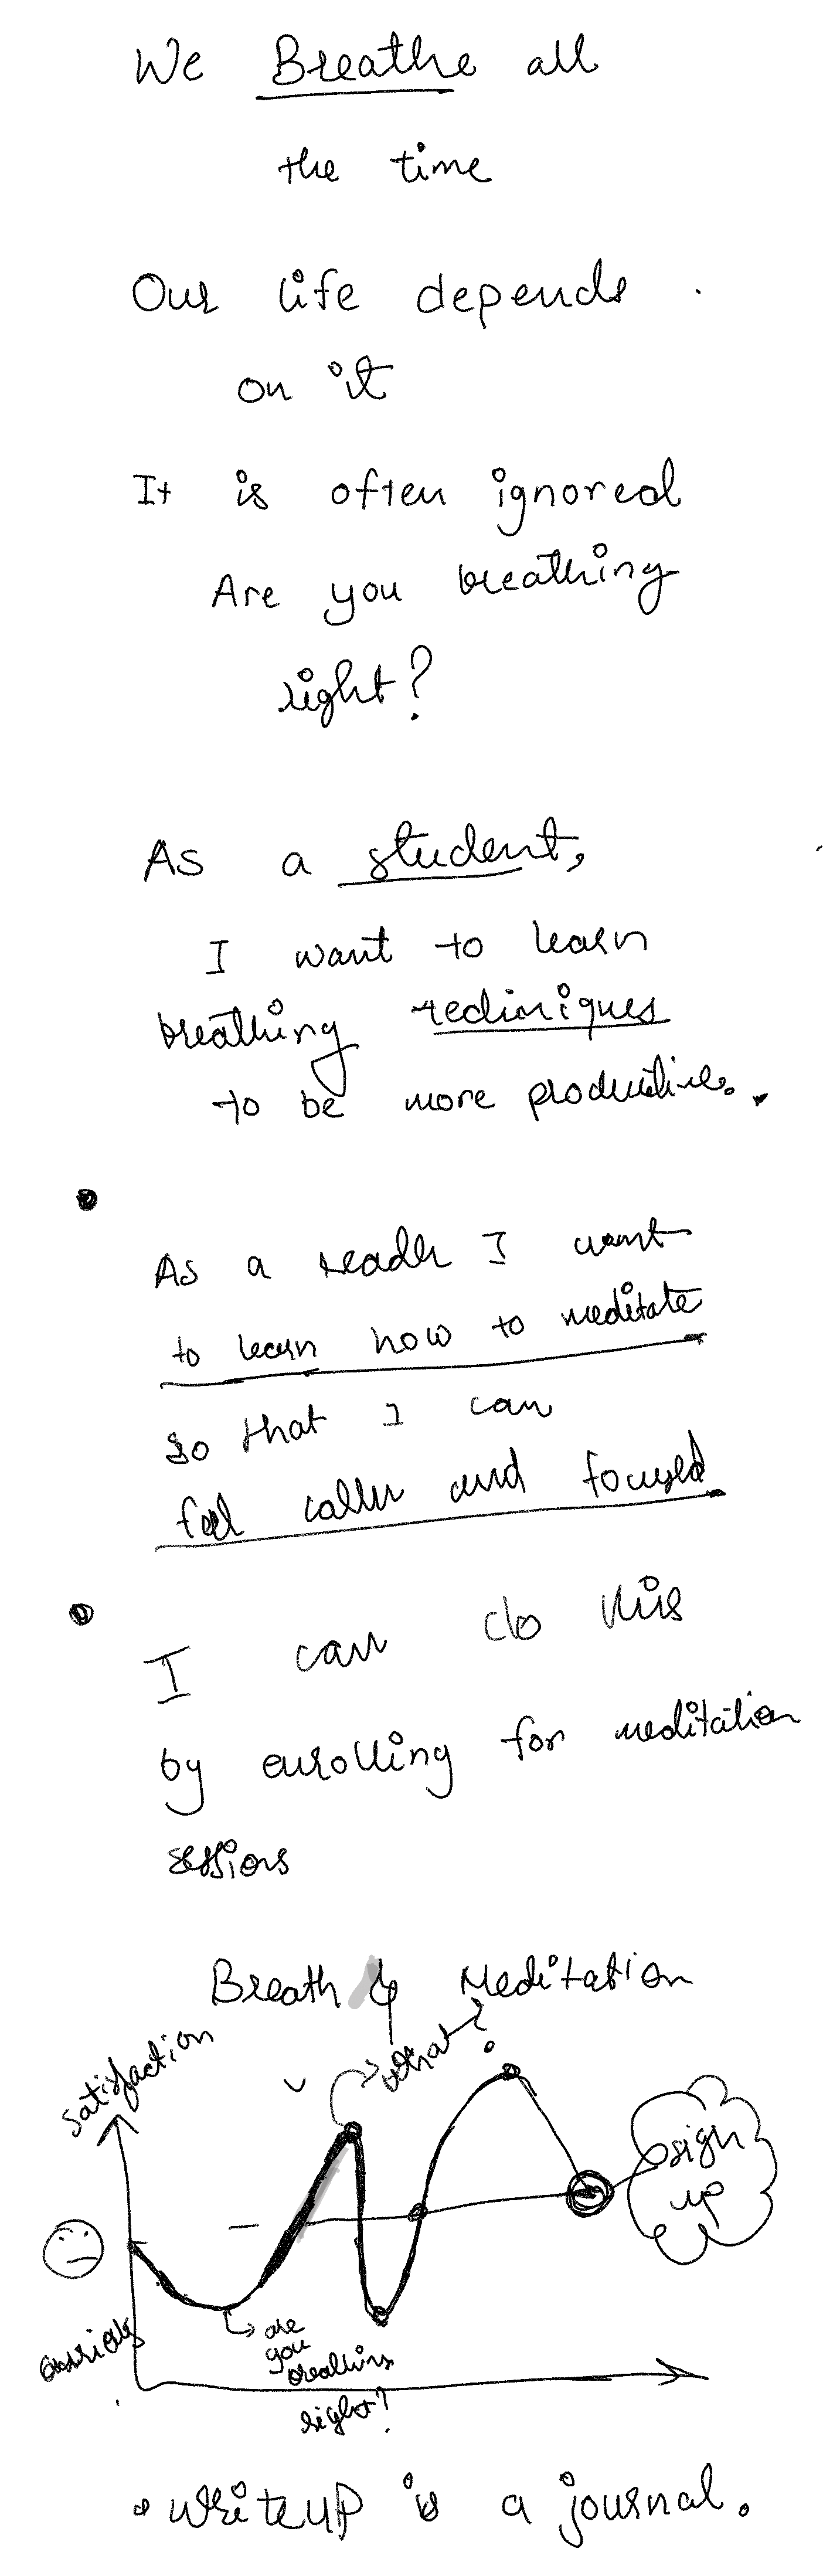 We Breathe all
the time
Our life depends
on it
It is often ignored
Are you breathing
right?
As a student,
I want to learn
breathing techniques
to be more productive.
As a reader I want
to learn how to meditate
so that I can
feel calmer and focused
I can do this
by enrolling for meditation
sessions
Breath & Meditation
Satisfaction
What?
sign
up
are
you
breathing
right?
• write up is a journal.